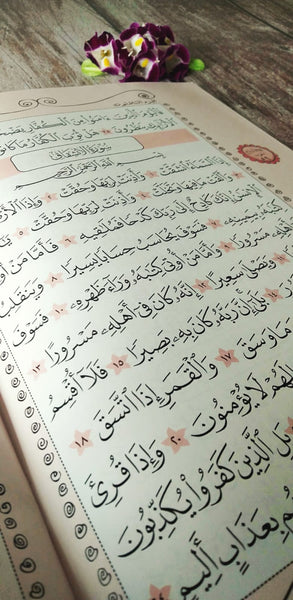 ٱلَّذِينَ ءَامَنُوا۟ مِنَ ٱلْكُفَّارِ
يَنظُرُونَ ٣٥ هَلْ ثُوِّبَ ٱلْكُفَّارُ مَا
سُورَةُ الانْشِقَاقِ
بِسْمِ ٱللَّهِ ٱلرَّحْمَٰنِ ٱلرَّحِيمِ
إِذَا ٱلسَّمَآءُ ٱنشَقَّتْ ١ وَأَذِنَتْ لِرَبِّهَا وَحُقَّتْ ٢ وَإِذَا
وَأَلْقَتْ مَا فِيهَا وَتَخَلَّتْ ٤ وَأَذِنَتْ لِرَبِّهَا وَحُقَّتْ ٥
ٱلْإِنسَٰنُ إِنَّكَ كَادِحٌ إِلَىٰ رَبِّكَ كَدْحًا فَمُلَٰقِيهِ ٦ فَأَمَّا مَنْ
كِتَٰبَهُۥ بِيَمِينِهِۦ ٧ فَسَوْفَ يُحَاسَبُ حِسَابًا يَسِيرًا ٨ وَيَنقَلِبُ
مَسْرُورًا ٩ وَأَمَّا مَنْ أُوتِىَ كِتَٰبَهُۥ وَرَآءَ ظَهْرِهِۦ ١٠ فَسَوْفَ
وَيَصْلَىٰ سَعِيرًا ١٢ إِنَّهُۥ كَانَ فِىٓ أَهْلِهِۦ مَسْرُورًا ١٣
إِنَّ رَبَّهُۥ كَانَ بِهِۦ بَصِيرًا ١٥ فَلَآ أُقْسِمُ
وَمَا وَسَقَ ١٧ وَٱلْقَمَرِ إِذَا ٱتَّسَقَ ١٨
لَهُمْ لَا يُؤْمِنُونَ ٢٠ وَإِذَا قُرِئَ
بَلِ ٱلَّذِينَ كَفَرُوا۟ يُكَذِّبُونَ
بِعَذَابٍ أَلِيمٍ